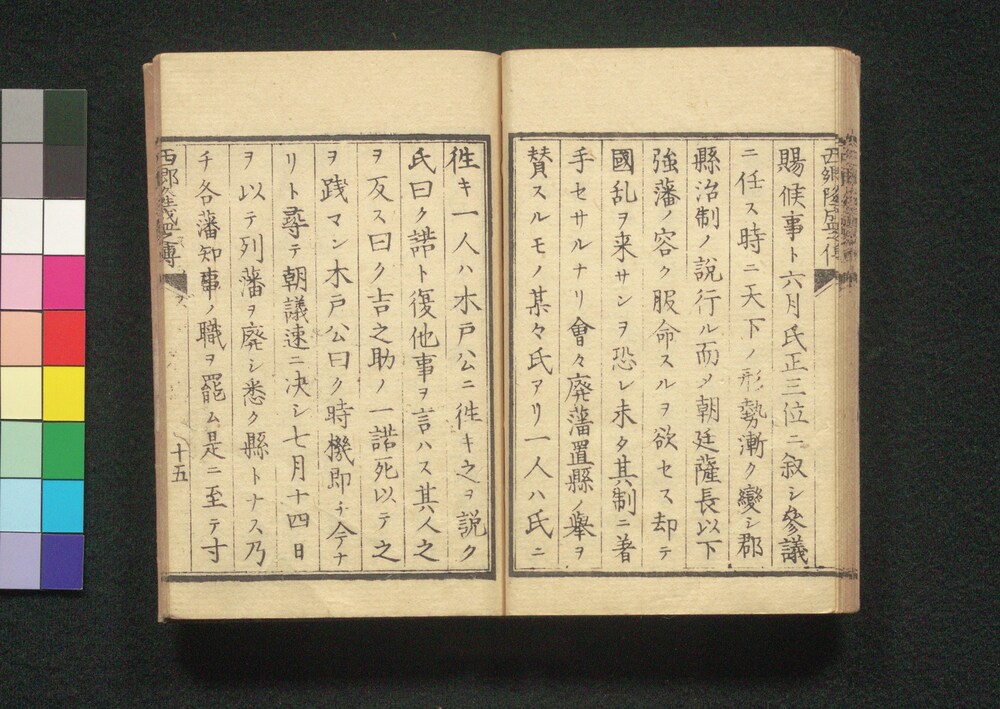 賜候事ト六月氏正三位ニ叙シ參議
ニ任ス時ニ天下ノ形勢漸ク變シ郡
縣治制ノ説行ル而メ朝廷薩長以下
強藩ノ容ク服命スルヲ欲セス却テ
國乱ヲ来サンヲ恐レ未タ其制ニ著
手セサルナリ會々廃藩置縣ノ舉ヲ
賛スルモノ某々氏アリ一人ハ氏ニ
徃キ一人ハ木戸公ニ徃キ之ヲ説ク
氏曰ク諾ト復他事ヲ言ハス其人之
ヲ反ス曰ク吉之助ノ一諾死以テ之
ヲ践マン木戸公曰ク時機即チ今ナ
リト尋テ朝議速ニ决シ七月十四日
ヲ以テ列藩ヲ廃シ悉ク縣トナス乃
チ各藩知事ノ職ヲ罷ム是ニ至テ寸
十五